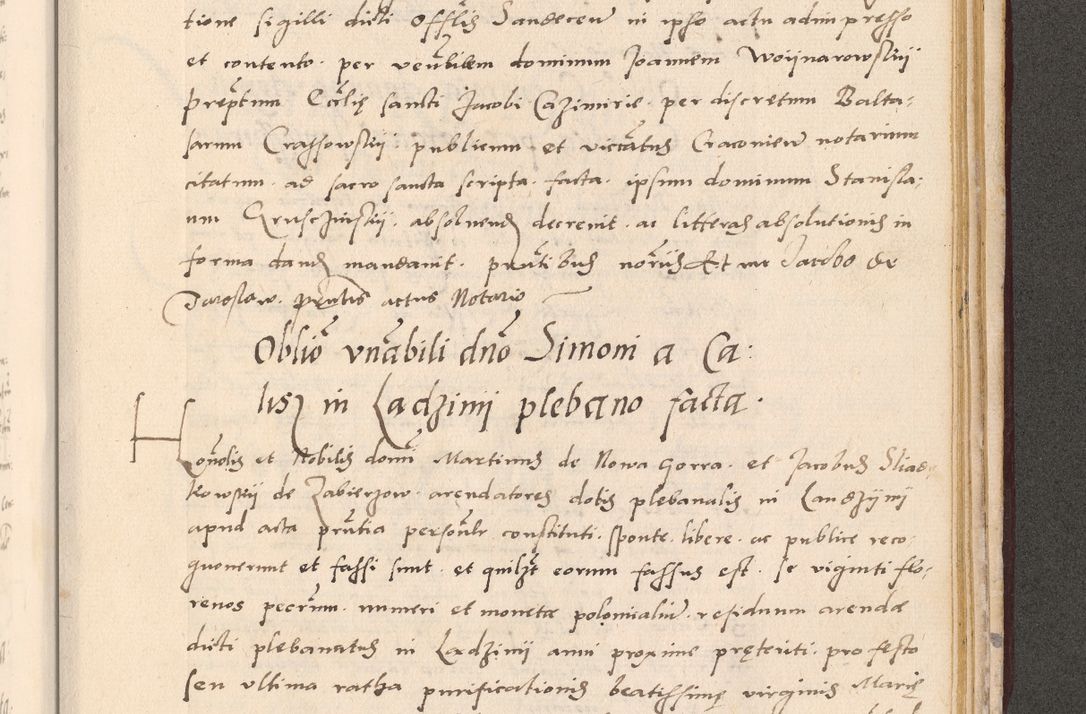 tione sigilli dicti Offlis Sandecen in ipso actu adimpresso
et contento. per venbilem dominum Joannem Woijnarowskij
preptum Ecclię sancti Jacobi Cazimirię. per discretum Balta-
sarum Crassowskij. publicum. et viccatus Cracovien notarium
citatum. ad sacro sancta scripta. facta. ipsum dominum Stanisla-
um Gruschinskij. absoluend decreuit. ac litteras absolutionis in
forma dand mandauit. pntibus notriis Et me Jacobo de
Jaroslaw. pntis actus Notario
Oblio vnabili dno Simoni a Ca:
lis in Ladzinij plebano facta.
Honolis et Nobilis domi Martinus de Nowa Gorra. et Jacobus Sliad-
kowskij de Zabierzow. arendatores dotis plebanalis in Landzijnij
apud acta pntia personlr constituti. sponte. libere. ac publice reco-
gnouerunt et fassi sunt. et quilzt eorum fassus est. se viginti flo-
renos pecrum. numeri et monetæ polonicaliu. residuum arendæ
dicti plebanatus in Ladzinij anni proxime pręteriti. pro festo
seu vltima ratha purificationis beatissimę virginis Marię